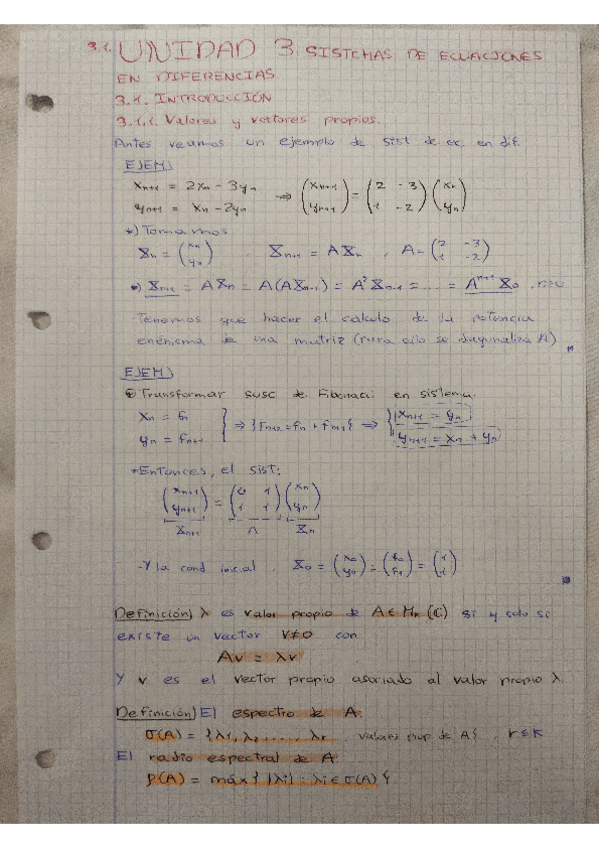 3.1. UNIDAD 3. SISTEMAS DE ECUACIONES
EN DIFERENCIAS
3.1. INTRODUCCIÓN
3.1.1. Valores y vectores propios.
Antes veamos un ejemplo de sist de ec en dif.
EJEM)
xₙ₊₁ = 2xₙ - 3yₙ ⇒ (xₙ₊₁ yₙ₊₁) = (2 -3 1 -2) (xₙ yₙ)
yₙ₊₁ = xₙ - 2yₙ
*) Tomamos
𝕏ₙ = (xₙ yₙ) . 𝕏ₙ₊₁ = A𝕏ₙ , A = (2 -3 1 -2)
*) 𝕏ₙ₊₁ = A𝕏ₙ = A(A𝕏ₙ₋₁) = A²𝕏ₙ₋₁ = .... = Aⁿ⁺¹ 𝕏₀
Tenemos que hacer el cálculo de la potencia
enénisma de una matriz (para ello se diagonaliza A)
EJEM)
Transformar susc de Fibonaci en sistema.
xₙ = fₙ
yₙ = fₙ₊₁ } ⇒ {fₙ₊₂ = fₙ + fₙ₊₁} ⇒ { xₙ₊₁ = yₙ
yₙ₊₁ = xₙ + yₙ
*Entonces, el sist:
(xₙ₊₁ yₙ₊₁) = (0 1 1 1) (xₙ yₙ)
𝕏ₙ₊₁ A 𝕏ₙ
-Y la cond inicial . 𝕏₀ = (x₀ y₀) = (f₀ f₁) = (1 1)
Definición) λ es valor propio de A ∈ Mₖ (ℂ) si y solo si
existe un vector V≠0 con
Av = λv
Y v es el vector propio asociado al valor propio λ.
Definición) El espectro de A:
σ(A) = {λ₁, λ₂, ...., λᵣ valores prop de A} , r≤k
El radio espectral de A
ρ(A) = máx{ |λᵢ| : λᵢ ∈ σ(A) }